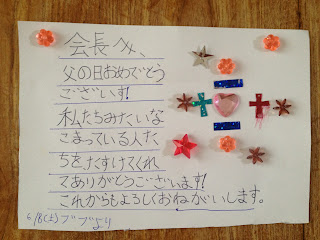 会長へ、
父の日おめでとう
ございます!
私たちみたいな
こまっている人た
ちをたすけてくれ
てありがとうございます!
これからもよろしくおねがいします。
6/8(土)ブブより